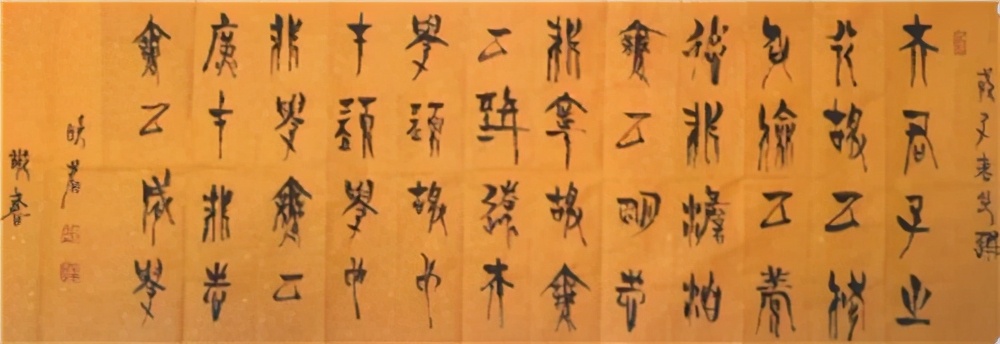 夫君子之
行靜以修
身儉以養
德非澹泊
無以明志
非寧靜無
以致遠夫
學須靜也
才須學也
非學無以
廣才非志
無以成學